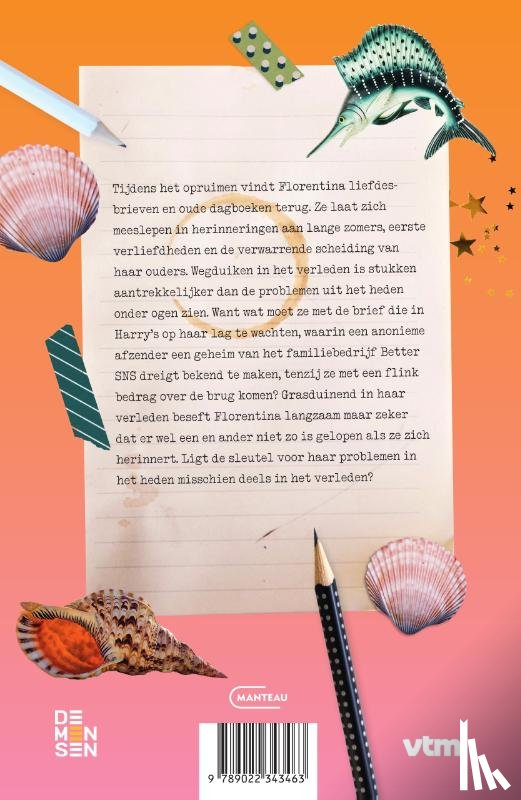 Tijdens het opruimen vindt Florentina liefdes-
brieven en oude dagboeken terug. Ze laat zich
meeslepen in herinneringen aan lange zomers, eerste
verliefdheden en de verwarrende scheiding van
haar ouders. Wegduiken in het verleden is stukken
aantrekkelijker dan de problemen uit het heden
onder ogen zien. Want wat moet ze met de brief die in
Harry's op haar lag te wachten, waarin een anonieme
afzender een geheim van het familiebedrijf Better
SNS dreigt bekend te maken, tenzij ze met een flink
bedrag over de brug komen? Grasduinend in haar
verleden beseft Florentina langzaam maar zeker
dat er wel een en ander niet zo is gelopen als ze zich
herinnert. Ligt de sleutel voor haar problemen in
het heden misschien deels in het verleden?
MANTEAU
DE
MEN
SEN
vtm
9 789022 343463